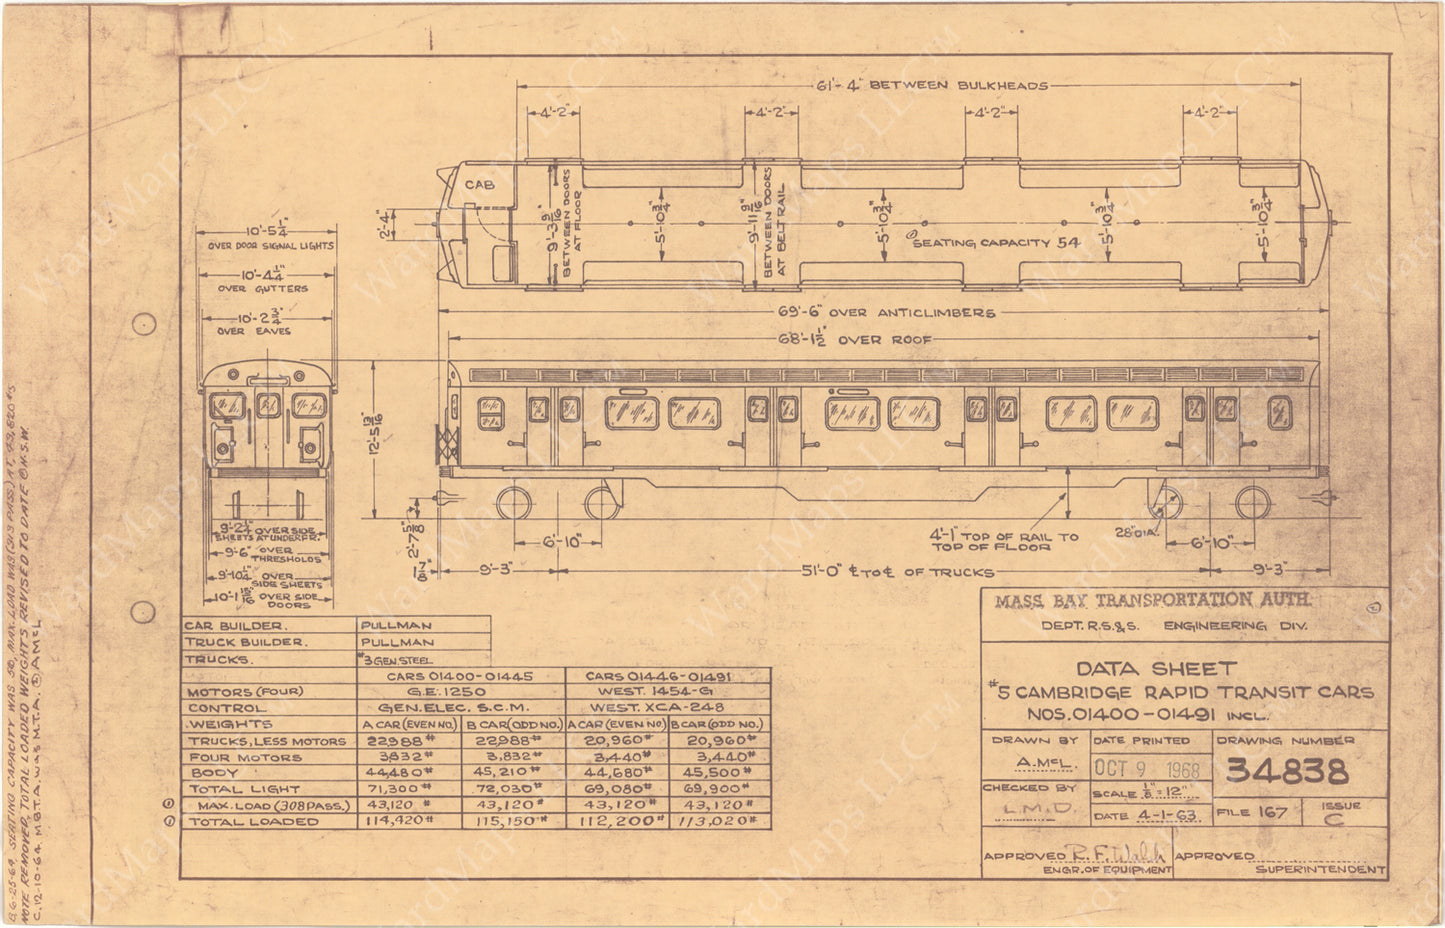 61'-4" BETWEEN BULKHEADS
4'-2" 4'-2" 4'-2" 4'-2"
CAB
2'-4"
9'-3 9/16" BETWEEN DOORS AT FLOOR
5'-10 3/4"
9'-11 9/16" BETWEEN DOORS AT BELT RAIL
5'-10 3/4"
SEATING CAPACITY 54
5'-10 3/4"
5'-10 3/4"
69'-6" OVER ANTICLIMBERS
68'-1 1/2" OVER ROOF
10'-5 1/4"
OVER DOOR SIGNAL LIGHTS
10'-4 1/4"
OVER GUTTERS
10'-2 3/4"
OVER EAVES
12'-5 13/16"
9'-2 1/4" OVER SIDE
SHEETS AT UNDERFR.
9'-6" OVER
THRESHOLDS
9'-10 1/4" OVER
SIDE SHEETS
10'-1 15/16" OVER SIDE
DOORS
2'-7 5/8"
1 7/8"
6'-10"
4'-1" TOP OF RAIL TO
TOP OF FLOOR
28" DIA.
6'-10"
9'-3"
51'-0" ℄ TO ℄ OF TRUCKS
9'-3"
CAR BUILDER. PULLMAN
TRUCK BUILDER. PULLMAN
TRUCKS. #3 GEN. STEEL
CARS 01400-01445 CARS 01446-01491
MOTORS (FOUR) G.E. 1250 WEST. 1454-G
CONTROL GEN. ELEC. S.C.M. WEST. XCA-248
WEIGHTS A CAR (EVEN NO.) B CAR (ODD NO.) A CAR (EVEN NO.) B CAR (ODD NO.)
TRUCKS, LESS MOTORS 22,988# 22,988# 20,960# 20,960#
FOUR MOTORS 3,832# 3,832# 3,440# 3,440#
BODY 44,480# 45,210# 44,680# 45,500#
TOTAL LIGHT 71,300# 72,030# 69,080# 69,900#
MAX. LOAD (308 PASS.) 43,120# 43,120# 43,120# 43,120#
TOTAL LOADED 114,420# 115,150# 112,200# 113,020#
MASS. BAY TRANSPORTATION AUTH.
DEPT. R.S.&S. ENGINEERING DIV.
DATA SHEET
#5 CAMBRIDGE RAPID TRANSIT CARS
NOS. 01400-01491 INCL.
DRAWN BY
A. McL.
DATE PRINTED
OCT 9 1968
DRAWING NUMBER
34838
CHECKED BY
L.M.D.
SCALE 1/8" = 12"
DATE 4-1-63
FILE 167
ISSUE
C
APPROVED R. F. Walsh
ENGR. OF EQUIPMENT
APPROVED
SUPERINTENDENT
B. 6-25-64, SEATING CAPACITY WAS 56, MAX. LOAD WAS (313 PASS.) AT, 43,820 #'S
NOTE REMOVED, TOTAL LOADED WEIGHTS REVISED TO DATE H.S.W.
C. 12-10-64. M.B.T.A. WAS M.T.A. A McL
WardMaps LLC